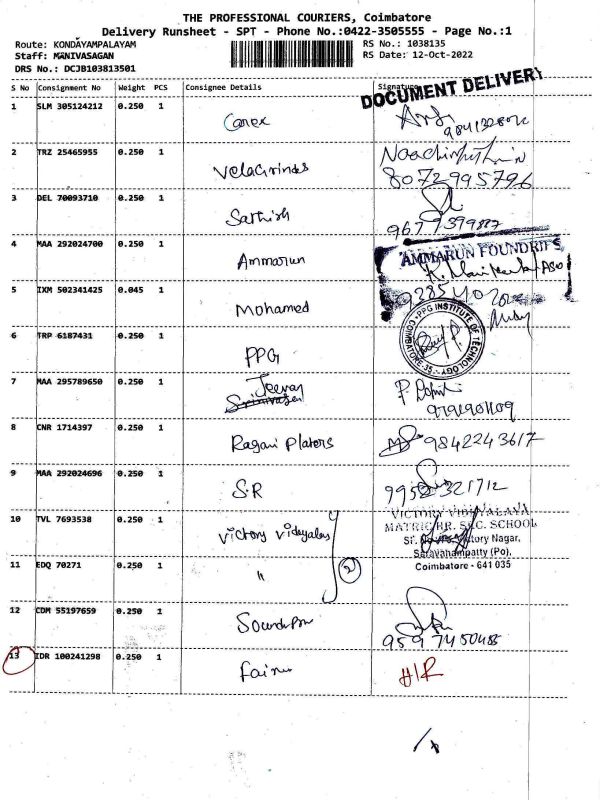 THE PROFESSIONAL COURIERS, Coimbatore
Delivery Runsheet - SPT - Phone No.:0422-3505555 - Page No.:1
Route: KONDAYAMPALAYAM
Staff: MANIVASAGAN
DRS No.: DCJB103813501
RS No.: 1038135
RS Date: 12-Oct-2022
S No Consignment No Weight PCS Consignee Details Signature
DOCUMENT DELIVERY
1 SLM 305124212 0.250 1 Carex
2 TRZ 25465955 0.250 1 Velacrinds
8072995796
3 DEL 70093710 0.250 1 Sathish
4 MAA 292024700 0.250 1 Ammarun
AMMARUN FOUNDRIES
5 IXM 502341425 0.045 1 Mohamed
6 TRP 6187431 0.250 1 PPG
PPG INSTITUTE OF TECHNOLOGY COIMBATORE-35
7 MAA 295789650 0.250 1 Jeevan
8 CNR 1714397 0.250 1 Ragavi Platers 9842243617
9 MAA 292024696 0.250 1 S.R
10 TVL 7693538 0.250 1 Victory Vidayalay
VICTORY VIDHYALAYA
MATRIC HR. SEC. SCHOOL
Victory Nagar,
Saravanampatty (Po),
Coimbatore - 641 035
11 EDQ 70271 0.250 1 " 2
12 CDM 55197659 0.250 1
13 IDR 100241298 0.250 1 H/R